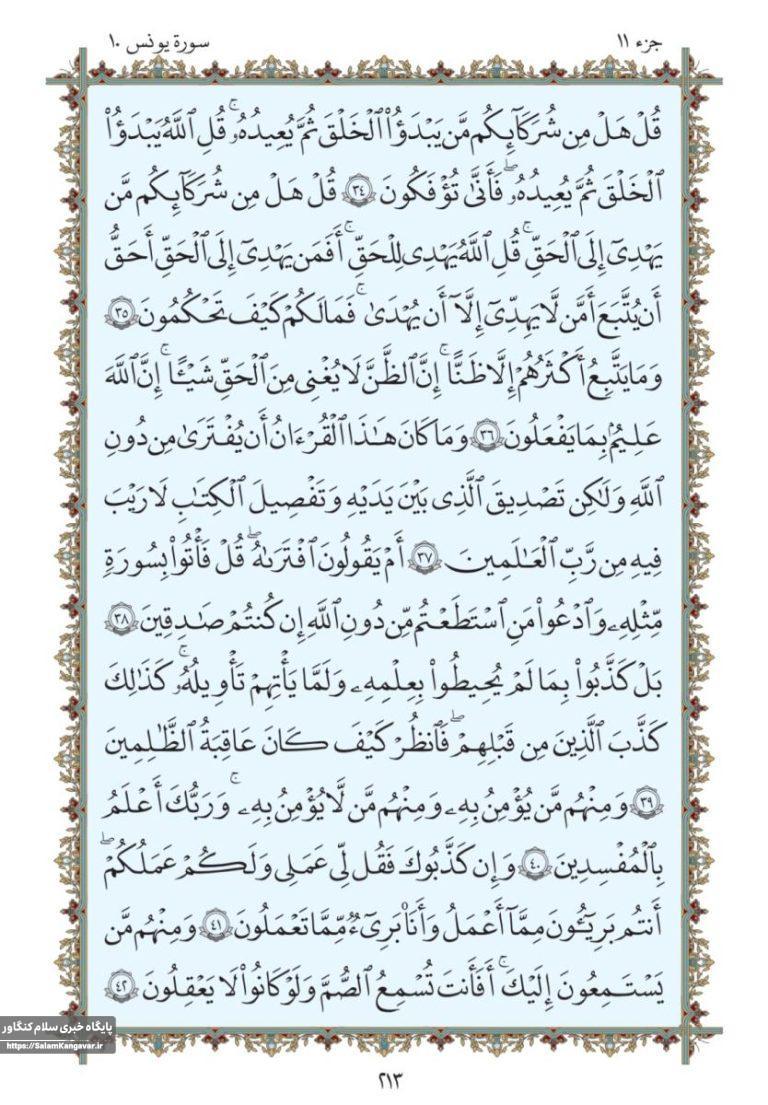 جزء ١١
سورة يونس ١٠
قُلْ هَلْ مِن شُرَكَآئِكُم مَّن يَبْدَؤُاْ الْخَلْقَ ثُمَّ يُعِيدُهُۥ ۚ قُلِ اللَّهُ يَبْدَؤُاْ
الْخَلْقَ ثُمَّ يُعِيدُهُۥ ۖ فَأَنَّىٰ تُؤْفَكُونَ ٣٤ قُلْ هَلْ مِن شُرَكَآئِكُم مَّن
يَهْدِىٓ إِلَى الْحَقِّ ۚ قُلِ اللَّهُ يَهْدِى لِلْحَقِّ ۗ أَفَمَن يَهْدِىٓ إِلَى الْحَقِّ أَحَقُّ
أَن يُتَّبَعَ أَمَّن لَّا يَهِدِّىٓ إِلَّآ أَن يُهْدَىٰ ۖ فَمَا لَكُمْ كَيْفَ تَحْكُمُونَ ٣٥
وَمَا يَتَّبِعُ أَكْثَرُهُمْ إِلَّا ظَنًّا ۚ إِنَّ الظَّنَّ لَا يُغْنِى مِنَ الْحَقِّ شَيْـًٔا ۚ إِنَّ اللَّهَ
عَلِيمٌۢ بِمَا يَفْعَلُونَ ٣٦ وَمَا كَانَ هَٰذَا الْقُرْءَانُ أَن يُفْتَرَىٰ مِن دُونِ
اللَّهِ وَلَٰكِن تَصْدِيقَ الَّذِى بَيْنَ يَدَيْهِ وَتَفْصِيلَ الْكِتَٰبِ لَا رَيْبَ
فِيهِ مِن رَّبِّ الْعَٰلَمِينَ ٣٧ أَمْ يَقُولُونَ افْتَرَىٰهُ ۖ قُلْ فَأْتُواْ بِسُورَةٍ
مِّثْلِهِۦ وَادْعُواْ مَنِ اسْتَطَعْتُم مِّن دُونِ اللَّهِ إِن كُنتُمْ صَٰدِقِينَ ٣٨
بَلْ كَذَّبُواْ بِمَا لَمْ يُحِيطُواْ بِعِلْمِهِۦ وَلَمَّا يَأْتِهِمْ تَأْوِيلُهُۥ ۚ كَذَٰلِكَ
كَذَّبَ الَّذِينَ مِن قَبْلِهِمْ ۖ فَانظُرْ كَيْفَ كَانَ عَٰقِبَةُ الظَّٰلِمِينَ
٣٩ وَمِنْهُم مَّن يُؤْمِنُ بِهِۦ وَمِنْهُم مَّن لَّا يُؤْمِنُ بِهِۦ ۚ وَرَبُّكَ أَعْلَمُ
بِالْمُفْسِدِينَ ٤٠ وَإِن كَذَّبُوكَ فَقُل لِّى عَمَلِى وَلَكُمْ عَمَلُكُمْ ۖ
أَنتُم بَرِيٓـُٔونَ مِمَّآ أَعْمَلُ وَأَنَا۠ بَرِىٓءٌ مِّمَّا تَعْمَلُونَ ٤١ وَمِنْهُم مَّن
يَسْتَمِعُونَ إِلَيْكَ ۚ أَفَأَنتَ تُسْمِعُ الصُّمَّ وَلَوْ كَانُواْ لَا يَعْقِلُونَ ٤٢
پایگاه خبری سلام کنگاور
https://SalamKangavar.ir
٢١٣